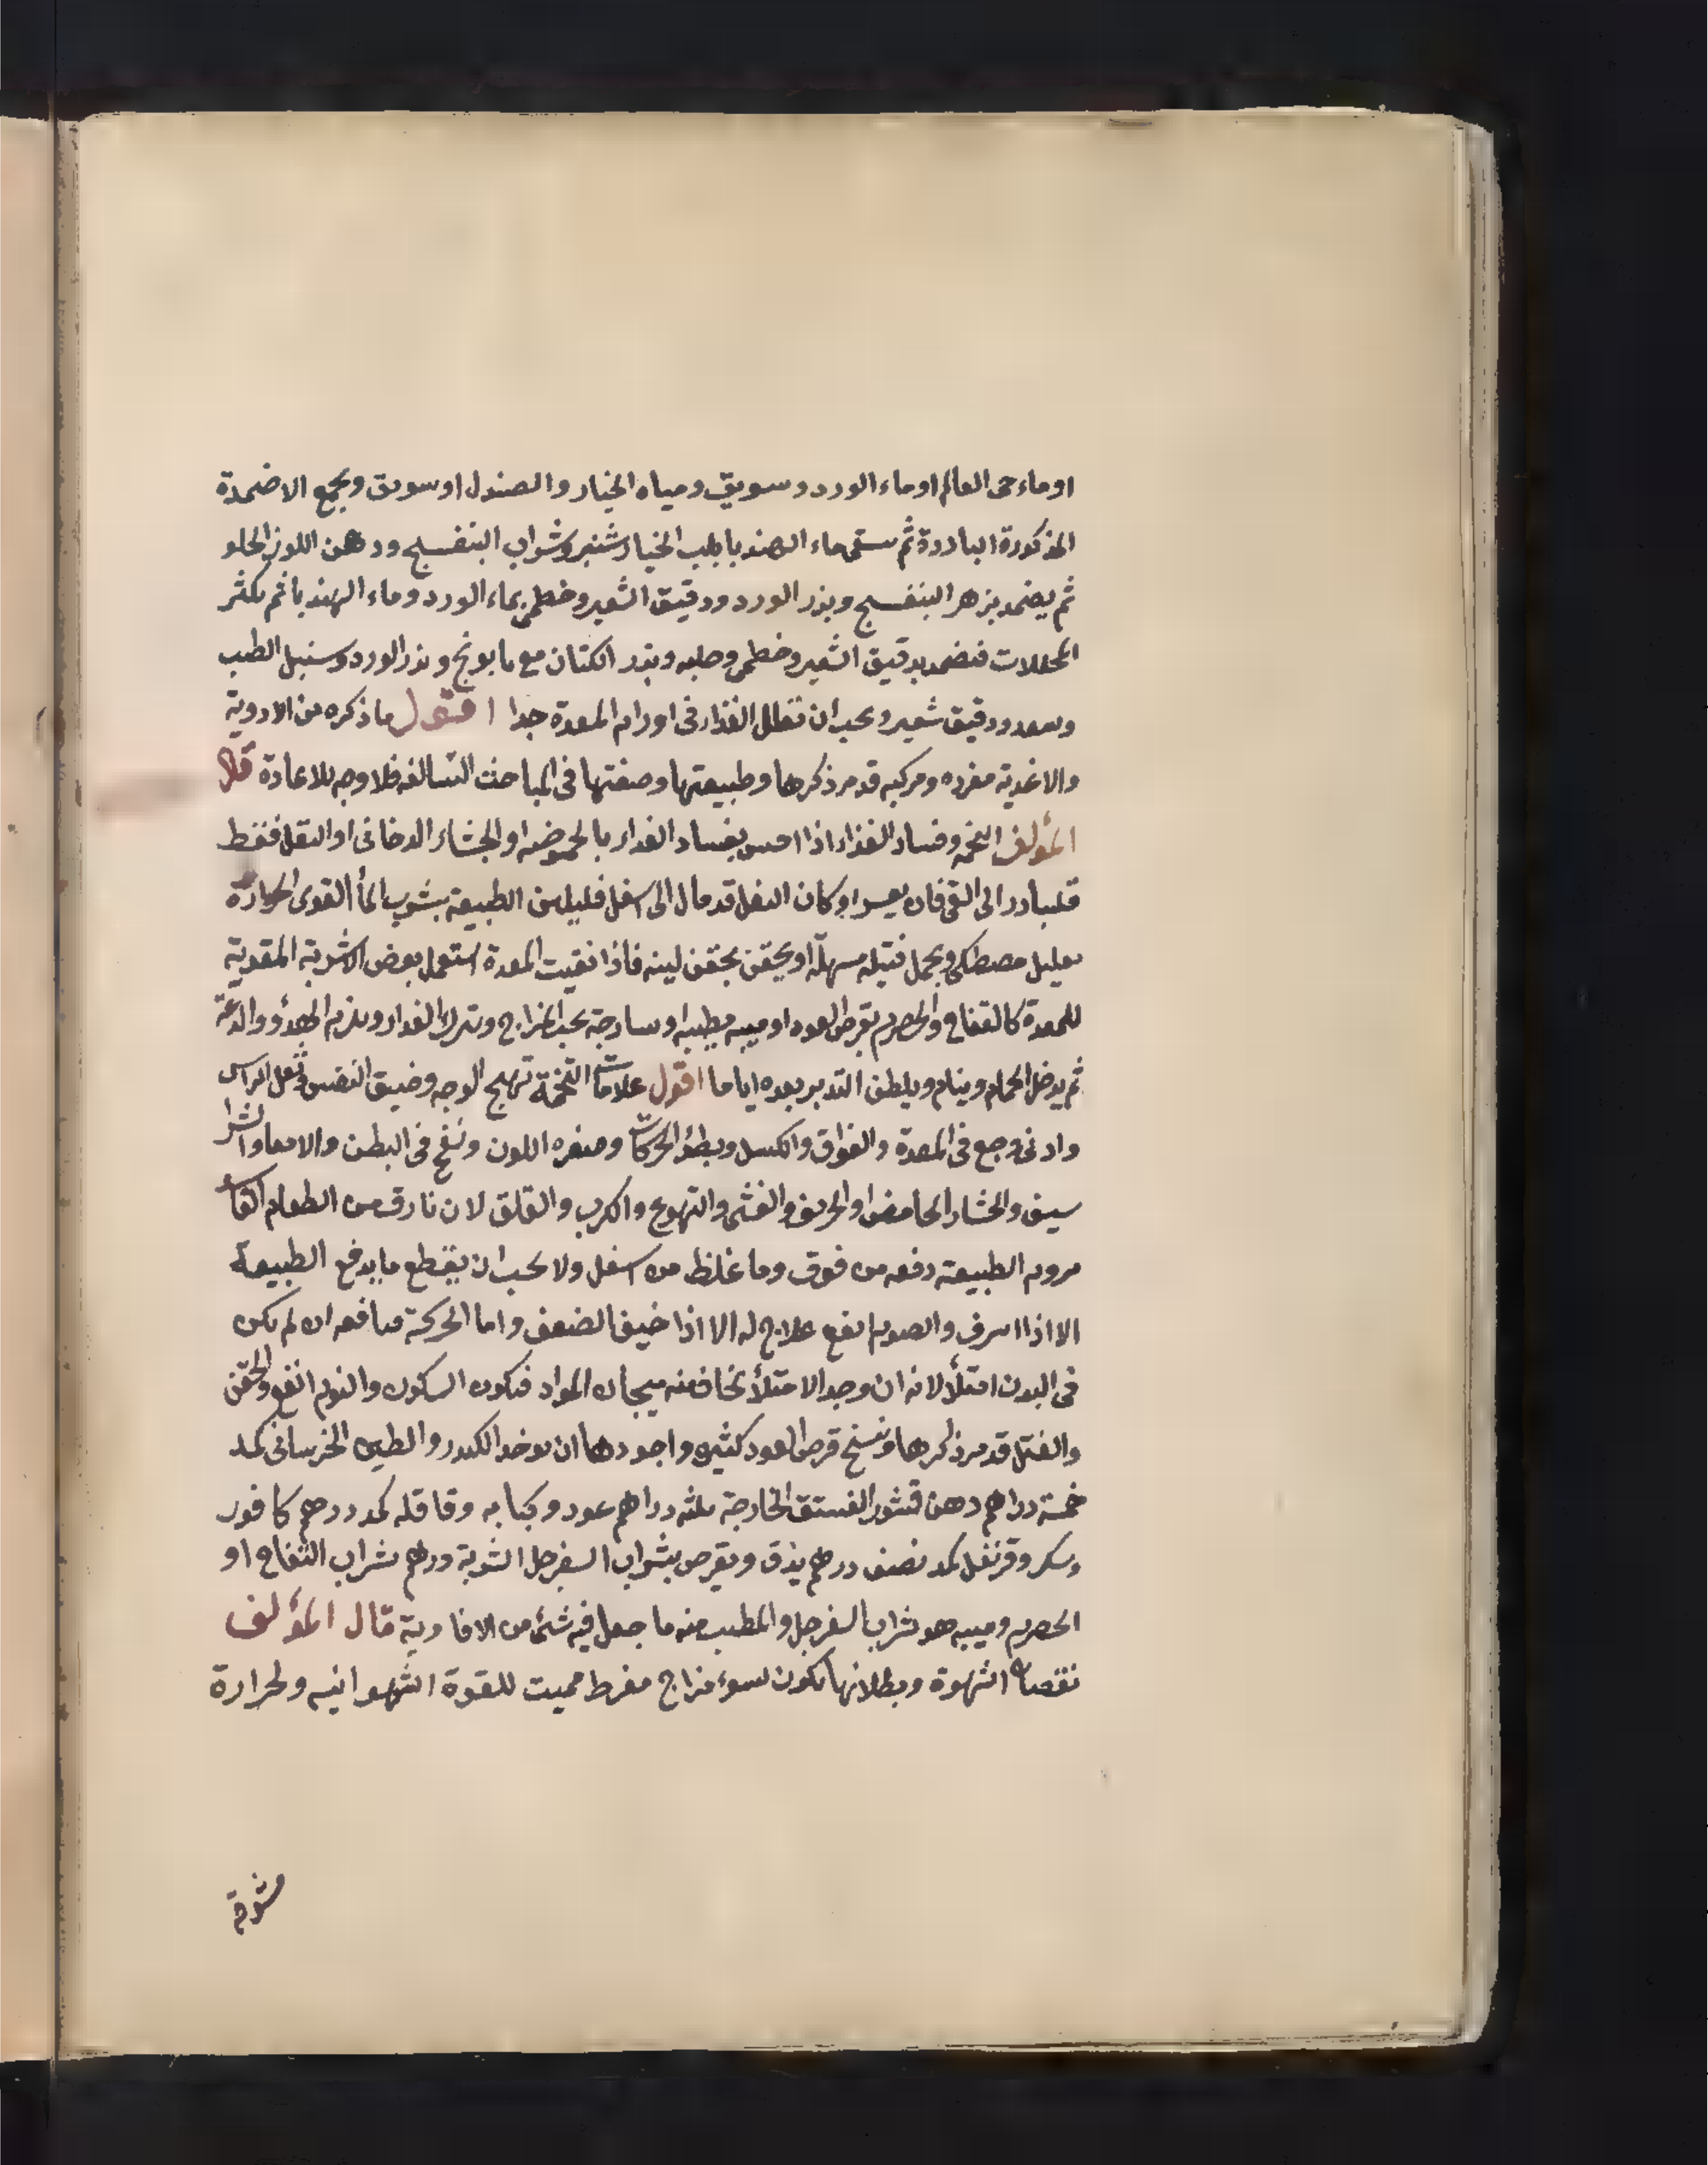 او ماء حى العالم او ماء الورد وسويق ومياه الخيار والصندل او سويق وبجمع الاضمدة
المذكورة الباردة ثم يسقى ماء الهندبا بلب الخيار شنبر وشراب البنفسج ودهن اللوز الحلو
ثم يضمد بزهر البنفسج وبزر الورد ودقيق الشعير وخطمى بماء الورد وماء الهندبا ثم يكثر
المحللات فيضمد بدقيق الشعير وخطمى وحلبه وبزر الكتان مع بابونج وبزر الورد وسنبل الطيب
وسعد ودقيق شعير ويجب ان يقلل الغذاء فى اورام المعدة جدا اقول ما ذكره من الادوية
والاغدية مفرده ومركبه قد مر ذكرها وطبيعتها وصفتها فى المباحث السالفه فلا وجه للاعادة قال
المؤلف التخمه وفساد الغذاء اذا احس بفساد الغداء بالحموضه او الجشاء الدخانى او الثقل فقط
فليبادر الى القى فان يعسر او كان الثقل قد مال الى اسفل فليلين الطبيعة بشرب الماء القوى الحرارة
بقليل مصطكى ويحمل فتيله مسهلة او يحقن بحقن لينه فاذا نقيت المعدة استعمل بعض الاشربة المقوية
للمعدة كالتفاح والحصرم بقرص العود او ميبه مطيبه او ساذجة بحسب المزاج ويترك الغداء ويلزم الهدؤ والدعة
ثم يدخل الحمام وينام ويلطف التدبير بعده اياما اقول علامات التخمة تهيج الوجه وضيق النفس وثقل الراس
وادنى وجع فى المعدة والفواق والكسل وبطؤ الحركات وصفره اللون ونفخ فى البطن والامعاء والشرا
سيف والجشاء الحامض او الحريف والغثى والتهوع والكرب والقلق لان ما رق من الطعام الفاسد
يروم الطبيعة دفعه من فوق وما غلظ من اسفل ولا يجب ان يقطع ما يدفع الطبيعة
الا اذا اسرف والصوم انفع علاج له الا اذا خيف الضعف واما الحركة فنافعه ان لم يكن
فى البدن امتلأ لانه ان وجد الامتلأ يخاف منه هيجان المواد فيكون السكون والنوم انفع والحقن
والفتل قد مر ذكرها ونسخ قرص العود كثيره واجودها ان يوخد الكندر والطين الخرسانى كمد
خمسة دراهم دهن قشور الفستق الخارجة ثلثه دراهم عود وكبابه وقاقله كمد درهم كافور
وسكر وقرنفل كمد نصف درهم يدق ويقرص بشراب السفرجل الشربة درهم بشراب التفاح او
الحصرم وميبه هو شراب السفرجل والمطيب منه ما جعل فيه شئ من الافاوية قال المؤلف
نقصان الشهوة وبطلانها يكون لسوء مزاج مفرط مميت للقوة الشهوانيه ولحرارة